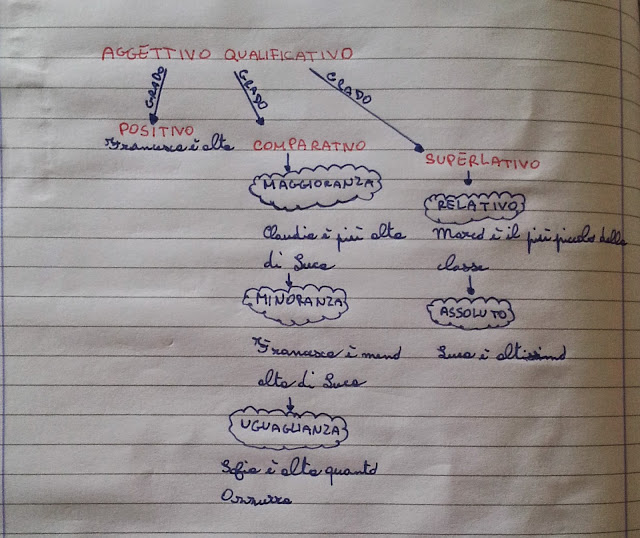 AGGETTIVO QUALIFICATIVO
GRADO GRADO GRADO
POSITIVO
Francesca è alta
COMPARATIVO
MAGGIORANZA
Claudia è più alta
di Luca
MINORANZA
Francesca è meno
alta di Luca
UGUAGLIANZA
Sofia è alta quanto
SUPERLATIVO
RELATIVO
Marco è il più piccolo della
classe
ASSOLUTO
Luca è altissimo